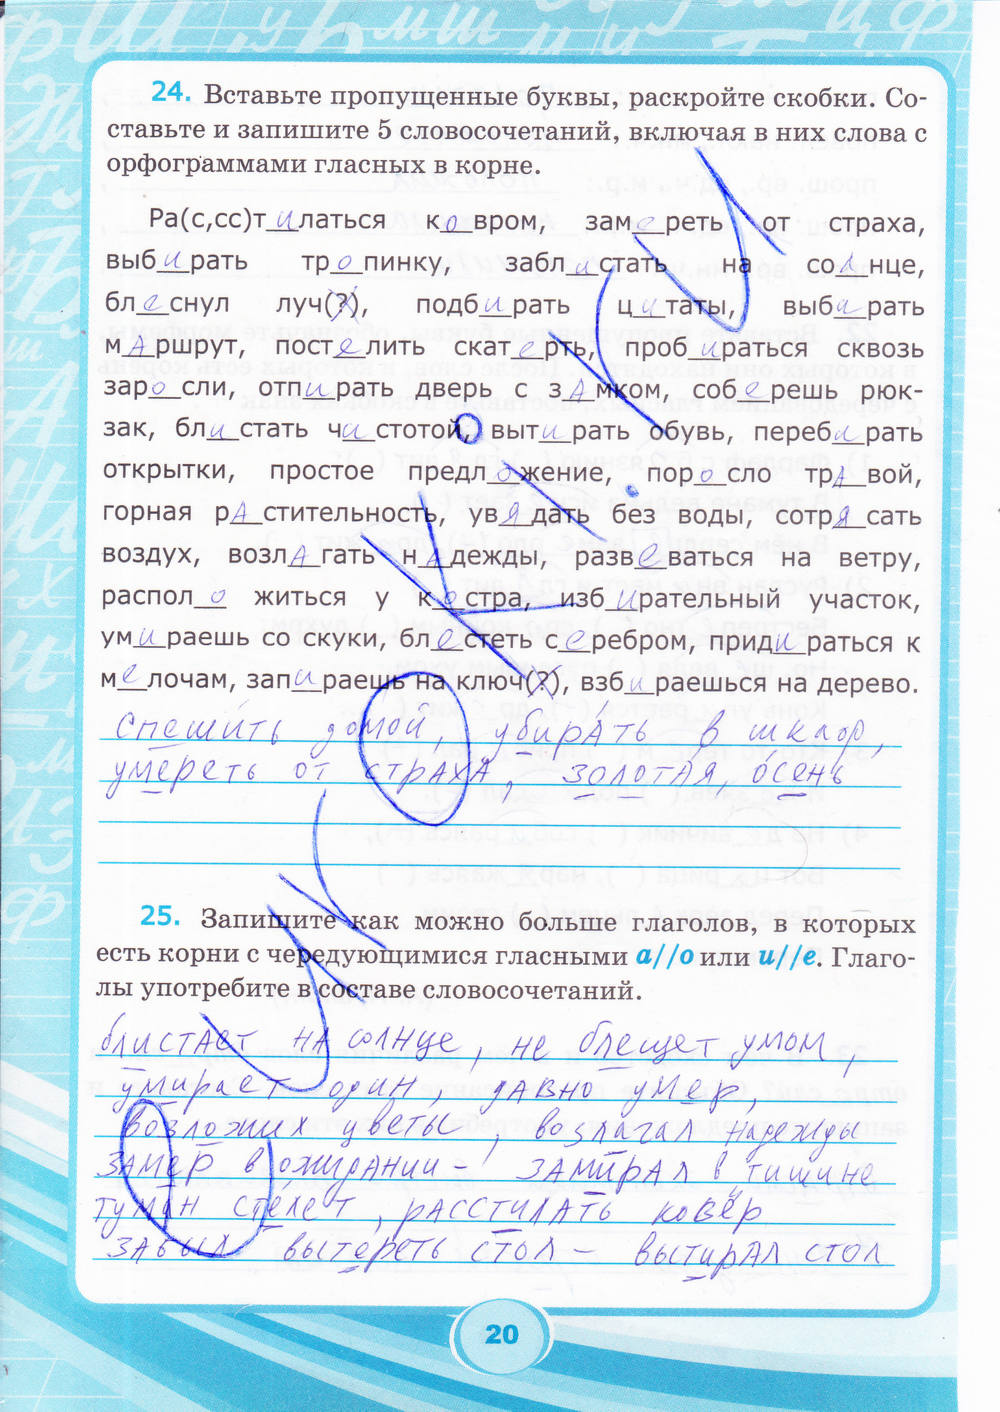 24. Вставьте пропущенные буквы, раскройте скобки. Со-
ставьте и запишите 5 словосочетаний, включая в них слова с
орфограммами гласных в корне.
Ра(с,сс)тилаться ковром, замереть от страха,
выбирать тропинку, заблистать на солнце,
блеснул луч(?), подбирать цитаты, выбирать
мАршрут, постелить скатерть, пробираться сквозь
заросли, отпирать дверь с зАмком, соберешь рюк-
зак, блистать чистотой, вытирать обувь, перебирать
открытки, простое предложение, поросло трАвой,
горная рАстительность, увядать без воды, сотрясать
воздух, возлАгать нАдежды, развеваться на ветру,
расположиться у костра, избирательный участок,
умираешь со скуки, блестеть серебром, придираться к
мелочам, запираешь на ключ(?), взбираешься на дерево.
Спешить домой, убирать в шкаф,
умереть от страха, золотая, осень
25. Запишите как можно больше глаголов, в которых
есть корни с чередующимися гласными а//о или и//е. Глаго-
лы употребите в составе словосочетаний.
блистает на солнце, не блещет умом,
умирает один, давно умер,
возложих цветы, возлагал надежды
замер в ожидании - замирал в тишине
туман стелет, расстилать ковёр
забыл вытереть стол - вытирал стол
20
уроки.ru